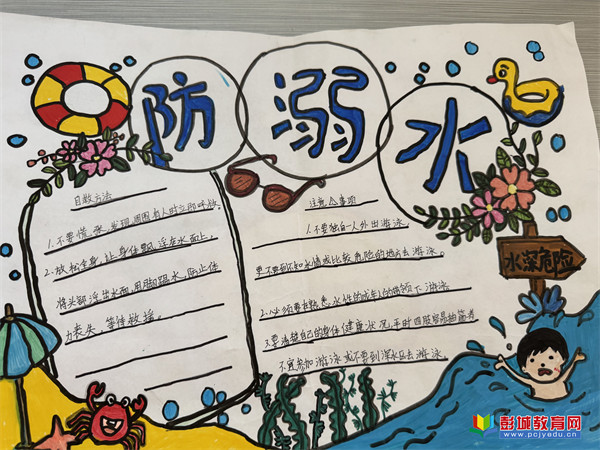 防溺水
自救方法
1.不要慌张,发现周围有人时立即呼救。
2.放松全身,让身体飘浮在水面上,
将头部浮出水面,用脚踢水,防止体
力丧失,等待救援。
注意事项
1.不要独自一人外出游泳,
更不要到不知水情或比较危险的地方去游泳。
2.必须要在熟悉水性的成年人的带领下游泳
3.要清楚自己的身体健康状况,平时四肢容易抽筋者
不宜参加游泳或不要到深水区去游泳。
水深危险
彭城教育网
www.pcjyedu.cn